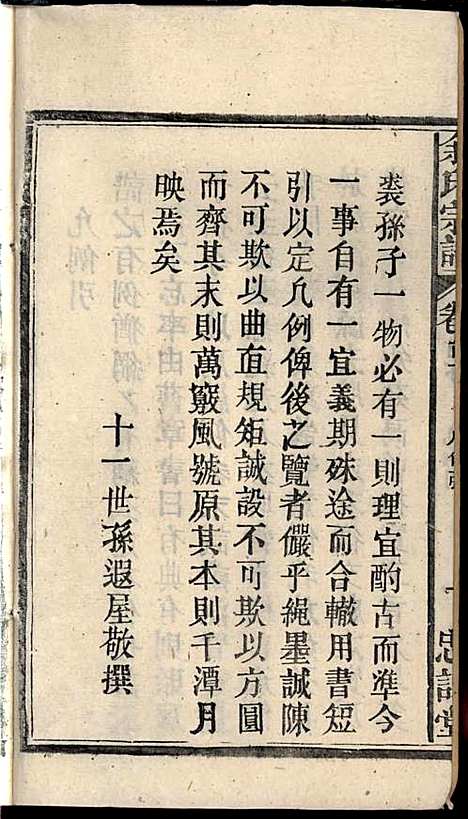 裘孫子一物必有一則理宜酌古而準今
一事自有一宜義期殊途而合轍用書短
引以定凡例俾後之覽者儼乎繩墨誠陳
不可欺以曲直規矩誠設不可欺以方圓
而齊其末則萬竅風號原其本則千潭月
映焉矣
十一世孫遐屋敬撰
余氏宗譜
卷首
凡例引
一
忠諫堂